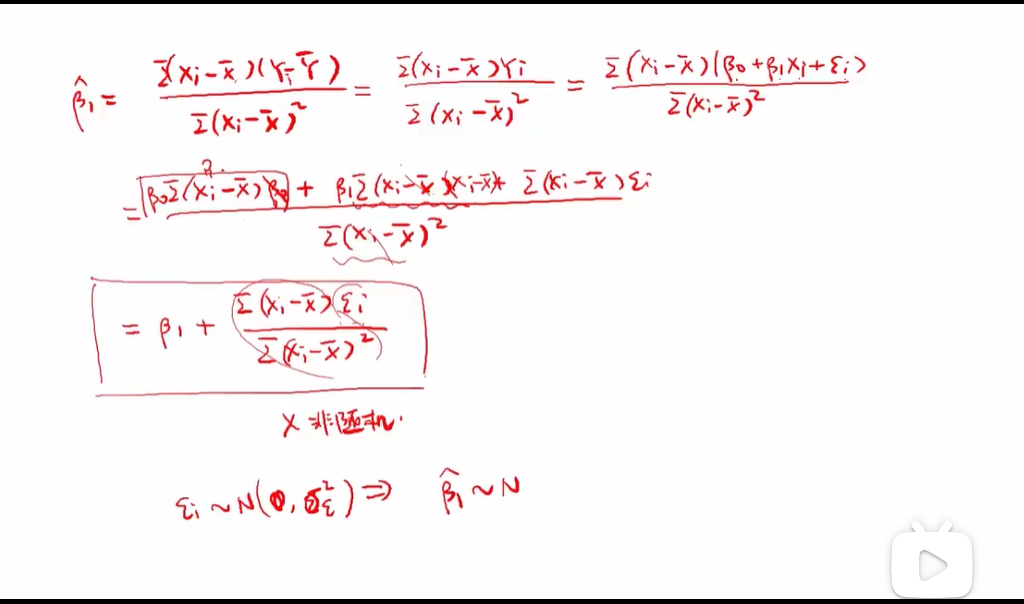 β̂₁ = Σ(xᵢ-x̄)(Yᵢ-Ȳ) / Σ(xᵢ-x̄)² = Σ(xᵢ-x̄)Yᵢ / Σ(xᵢ-x̄)² = Σ(xᵢ-x̄)(β₀+β₁xᵢ+εᵢ) / Σ(xᵢ-x̄)²
= β₀Σ(xᵢ-x̄) + β₁Σ(xᵢ-x̄)(xᵢ-x̄) + Σ(xᵢ-x̄)εᵢ / Σ(xᵢ-x̄)²
= β₁ + Σ(xᵢ-x̄)εᵢ / Σ(xᵢ-x̄)²
X 非随机.
εᵢ ~ N(0, σ²_ε) ⇒ β̂₁ ~ N